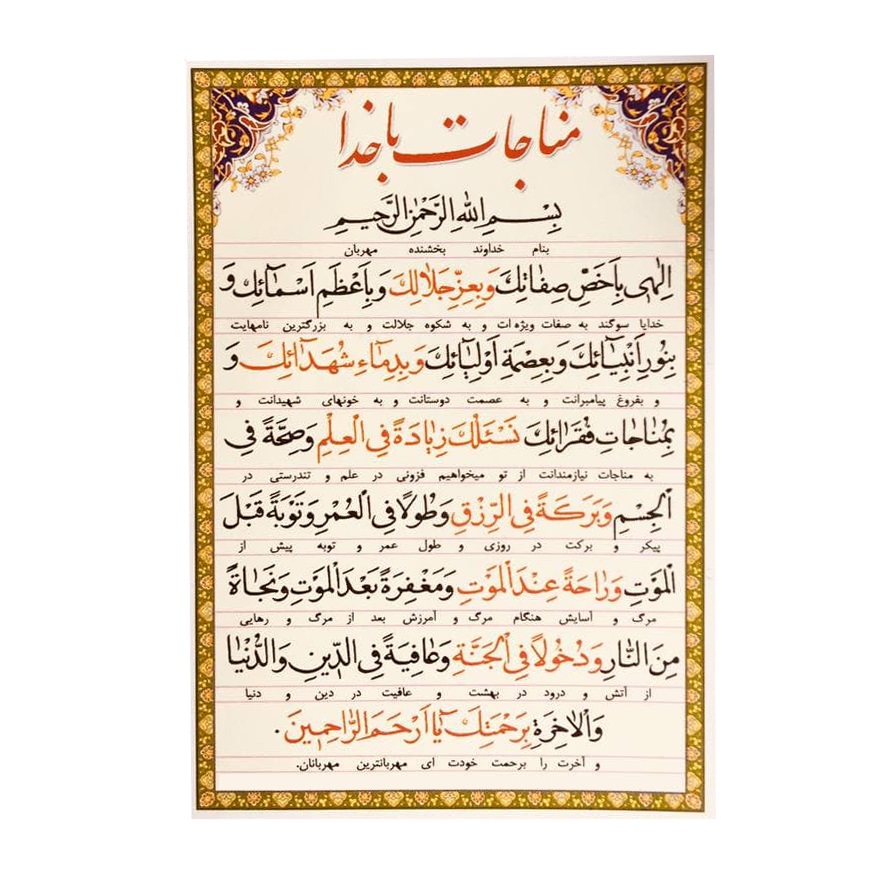 مناجات با خدا
بِسْمِ اللهِ الرَّحْمٰنِ الرَّحیمِ
بنام خداوند بخشنده مهربان
اِلٰهی بِاَخَصِّ صِفاتِكَ وَبِعِزِّ جَلالِكَ وَبِاَعْظَمِ اَسْمآئِكَ وَ
خدایا سوگند به صفات ویژه ات و به شکوه جلالت و به بزرگترین نامهایت
بِنُورِ اَنْبِیآئِكَ وَبِعِصْمَةِ اَوْلِیآئِكَ وَبِدِمآءِ شُهَدآئِكَ وَ
و بفروغ پیامبرانت و به عصمت دوستانت و به خونهای شهیدانت و
بِمُناجاتِ فُقَرآئِكَ نَسْئَلُكَ زِیادَةً فِی الْعِلْمِ وَصِحَّةً فِی
به مناجات نیازمندانت از تو میخواهیم فزونی در علم و تندرستی در
الْجِسْمِ وَبَرَكَةً فِی الرِّزْقِ وَطُولاً فِی الْعُمْرِ وَتَوْبَةً قَبْلَ
پیکر و برکت در روزی و طول عمر و توبه پیش از
الْمَوْتِ وَراحَةً عِنْدَ الْمَوْتِ وَمَغْفِرَةً بَعْدَ الْمَوْتِ وَنَجاةً
مرگ و آسایش هنگام مرگ و آمرزش بعد از مرگ و رهایی
مِنَ النّارِ وَدُخُولاً فِی الْجَنَّةِ وَعافِیَةً فِی الدّینِ وَالدُّنْیا
از آتش و درود در بهشت و عافیت در دین و دنیا
وَالْاٰخِرَةِ بِرَحْمَتِكَ یآ اَرْحَمَ الرّاحِمینَ.
و آخرت را برحمت خودت ای مهربانترین مهربانان.